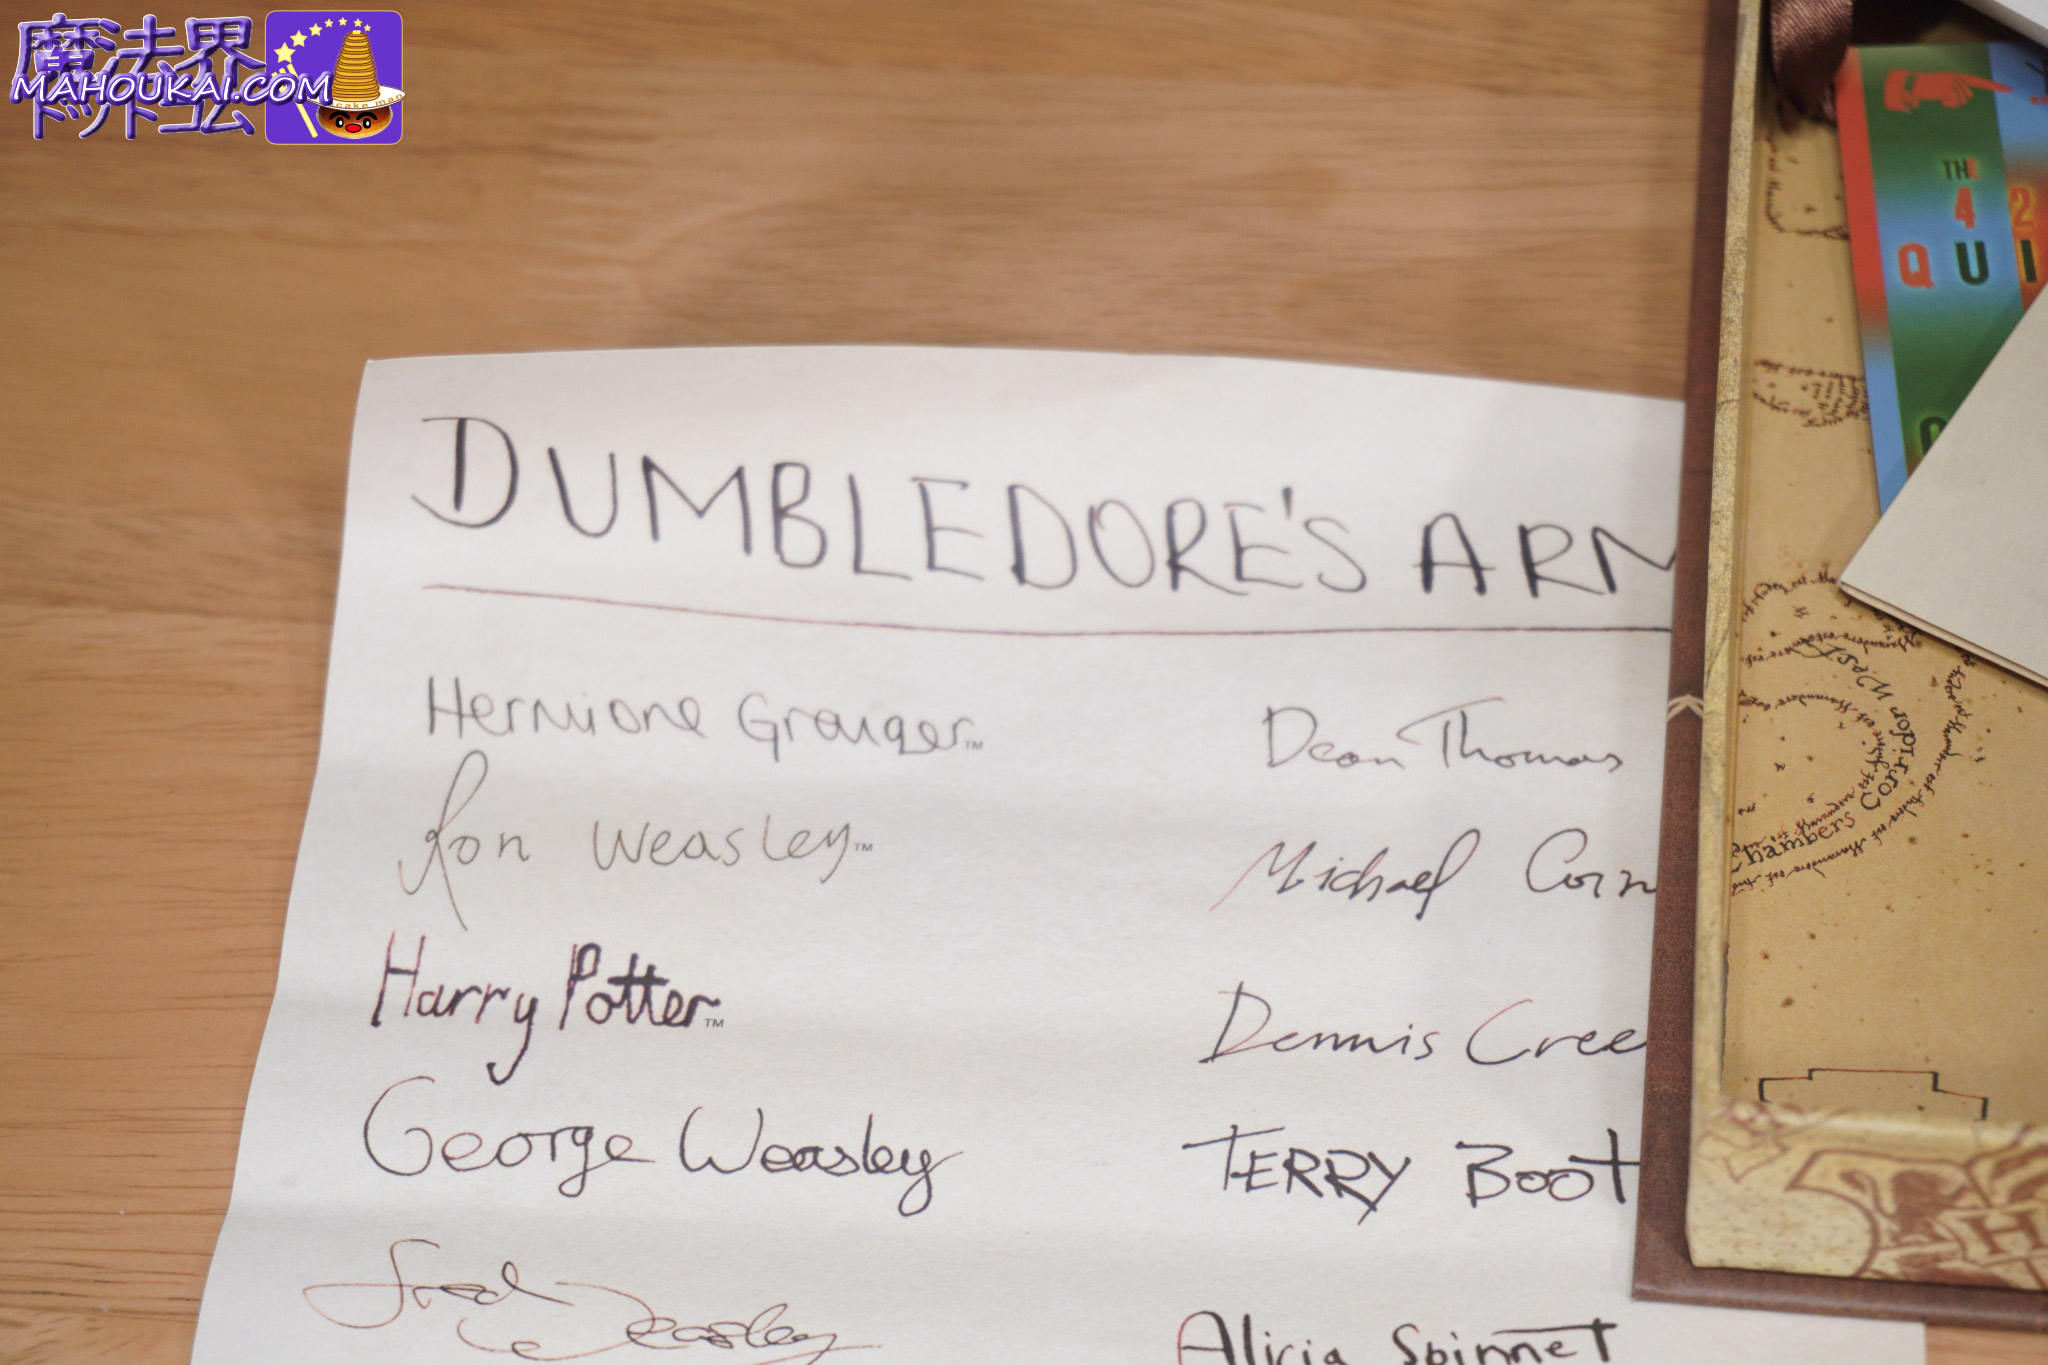 魔法界
MAHOUKAI.COM
ドットコム
cake man
THE
4 2
QUI
DUMBLEDORE'S ARM
Hermione Granger™
Ron Weasley™
Harry Potter™
George Weasley
Fred Weasley
Dean Thomas
Michael Corn
Dennis Cree
TERRY BOOT
Alicia Spinnet
Chambers Corridor West
H